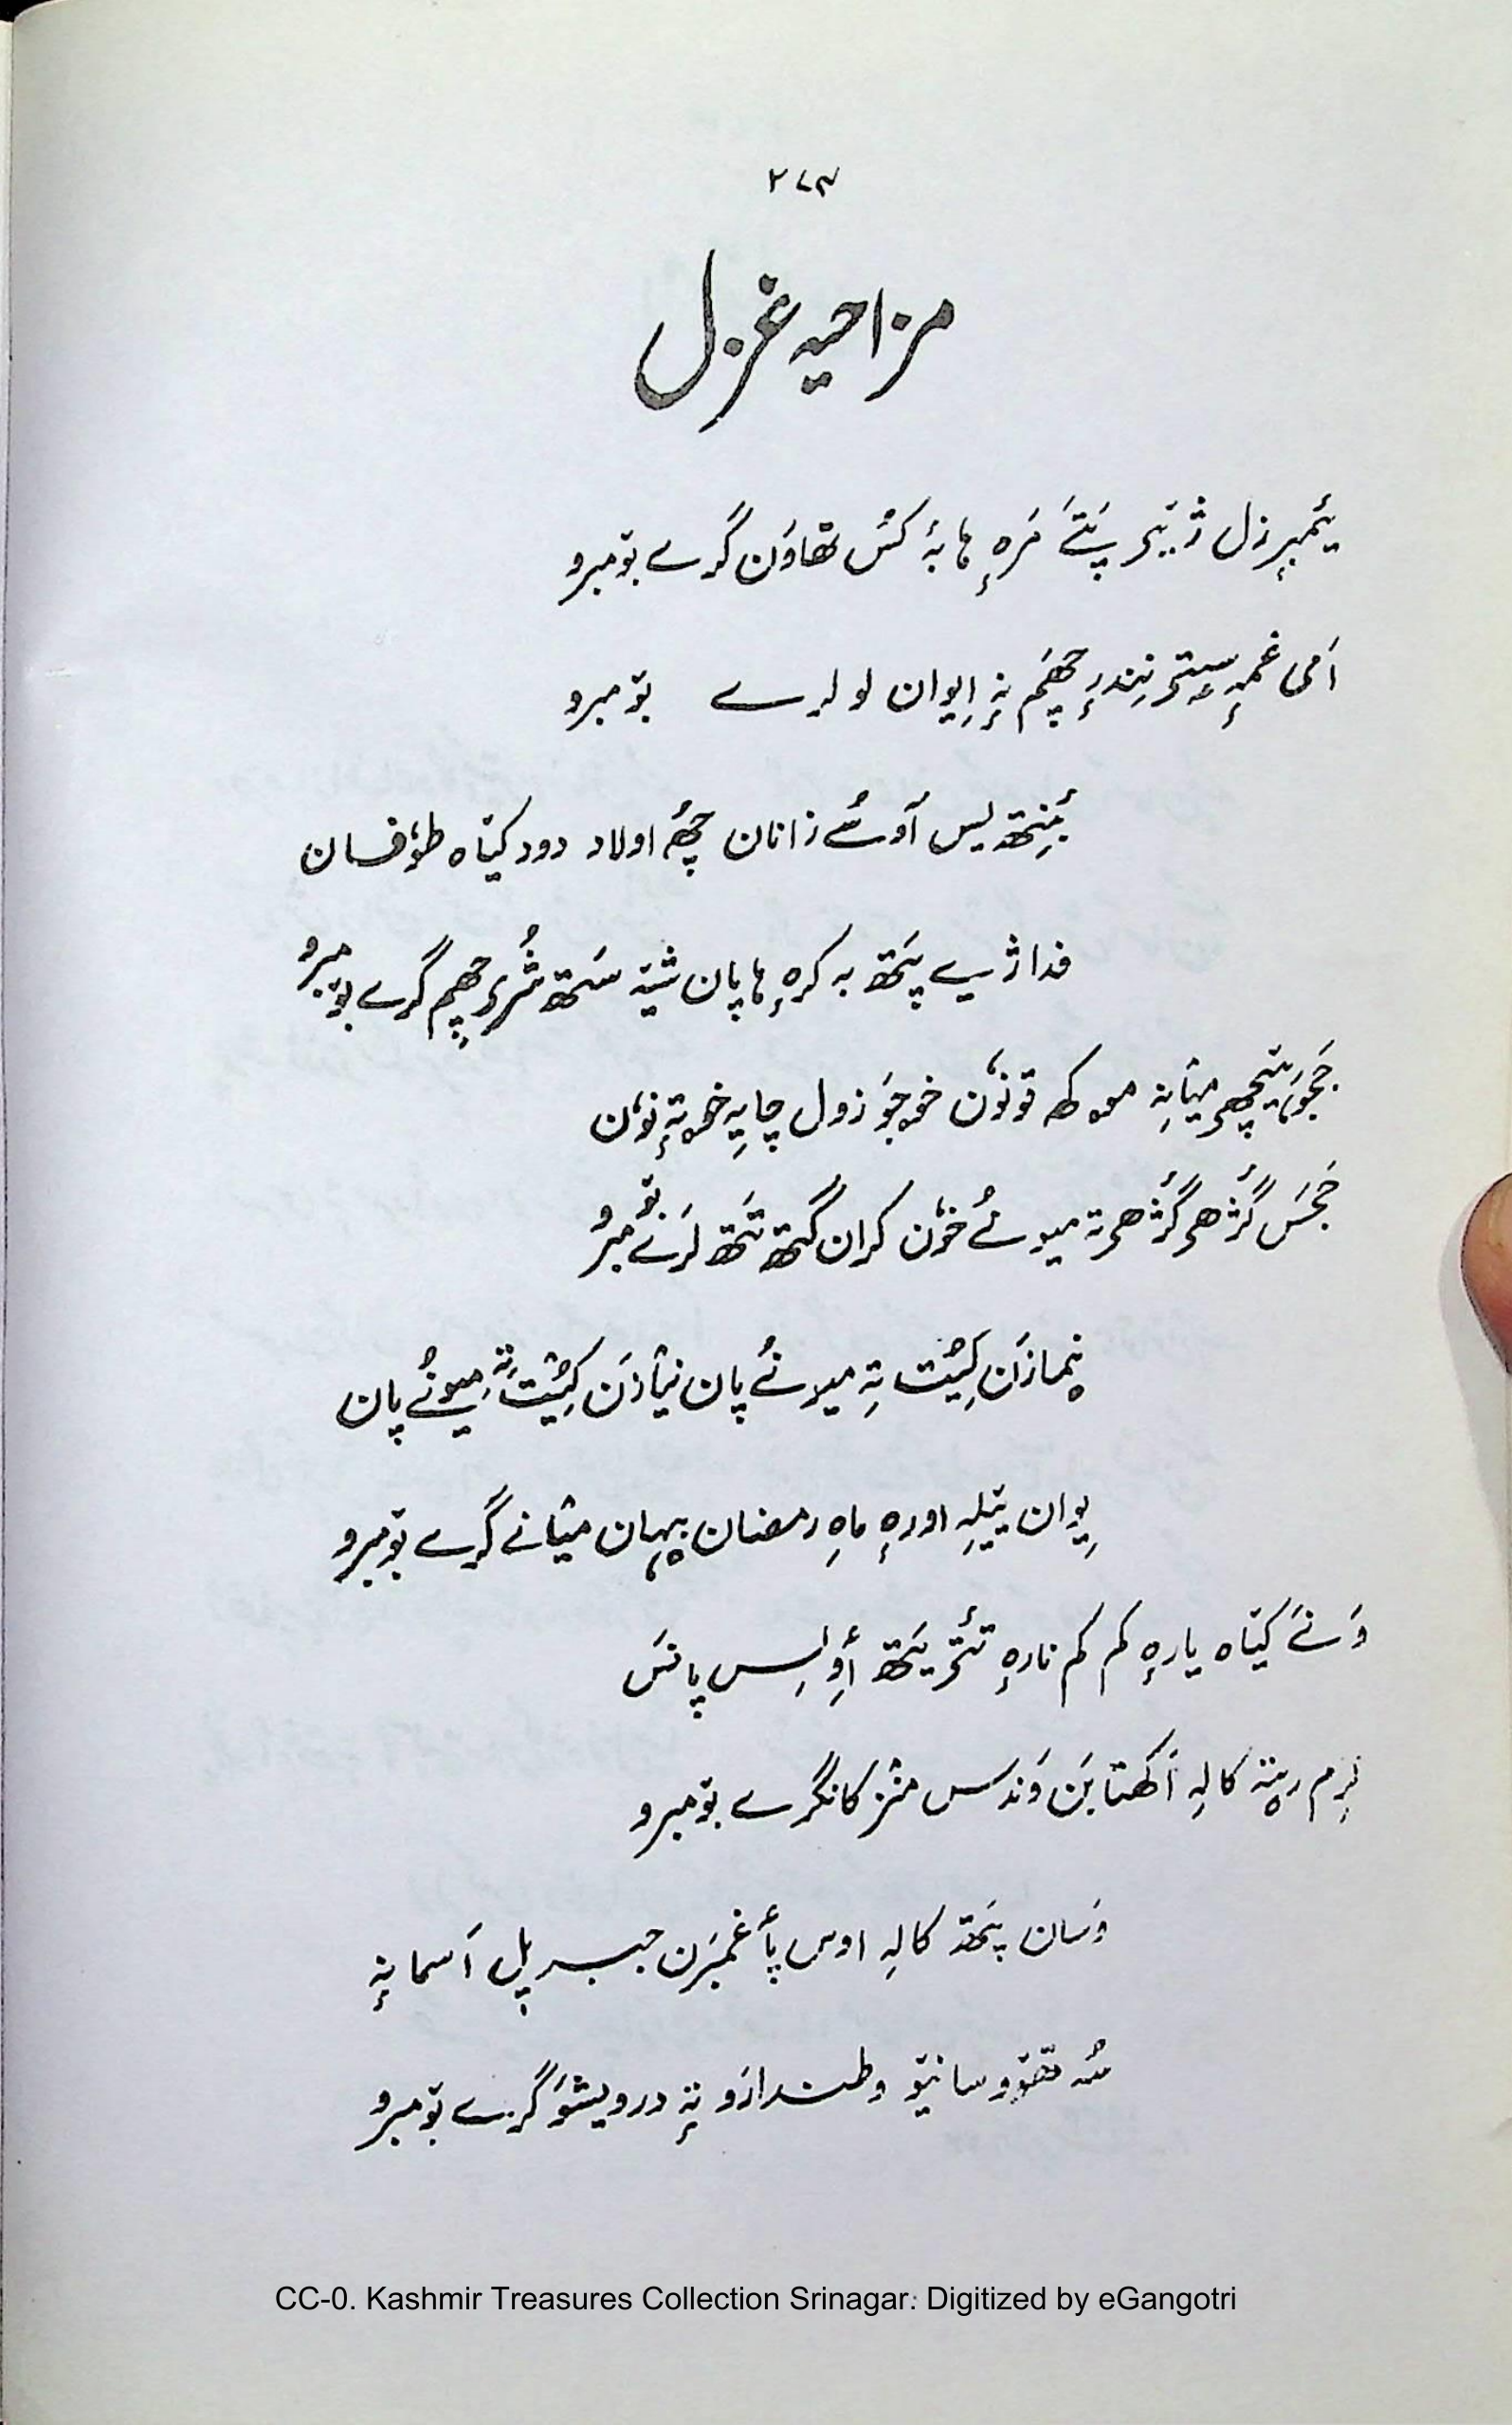 ۲۷۴
مزاحیہ غزل
یٔمبرٕزل ژٔیی پَتَے مَرہٕ ہا بۂ کَس تھاوَن گَرے بۆمبرو
اَمی غمہٕ سۭتۍ نِندرٕ چھَم نہٕ اِیوان لولرے بۆمبرو
بٔنِتھ یس آو سُے زانان چھُ اولاد دود کیٛاہ طوٗفان
فدا ژےیہ پَتھ بہ کرہٕ ہا پان شیٚہ سَتھ شُرۍ چھِم گرے بۆمبرو
میٛانہِ موکھہ تو نوٗن خوجَو زول چایہِ خوتہٕ نوٗن
حَجَس گژھۍ گژھۍ تہ میونُے خوٗن کران گتھ تَتھ لَرے بۆمبرو
نِمازَن کیُت تہِ میونُے پان نیٛازَن کیُت تہٕ میونُے پان
یِوان ییٚلہِ اورہٕ ماہِ رمضان پیہان میٛانے گرے بۆمبرو
وَنَے کیٛاہ یارہٕ کم کم نارہٕ تٔتۍ یَتھ أوِلِس پانَس
نِرم ریٚتہٕ کالہِ اَکھتابَن وَندس منٛز کانگرے بۆمبرو
وَسان پَتھ کالہِ اوس پأغمبَرن جبریل آسمانہٕ
سُہ تھوٚو سانیوٚ وطندارَو نہٕ درویشَو گرے بۆمبرو
CC-0. Kashmir Treasures Collection Srinagar. Digitized by eGangotri